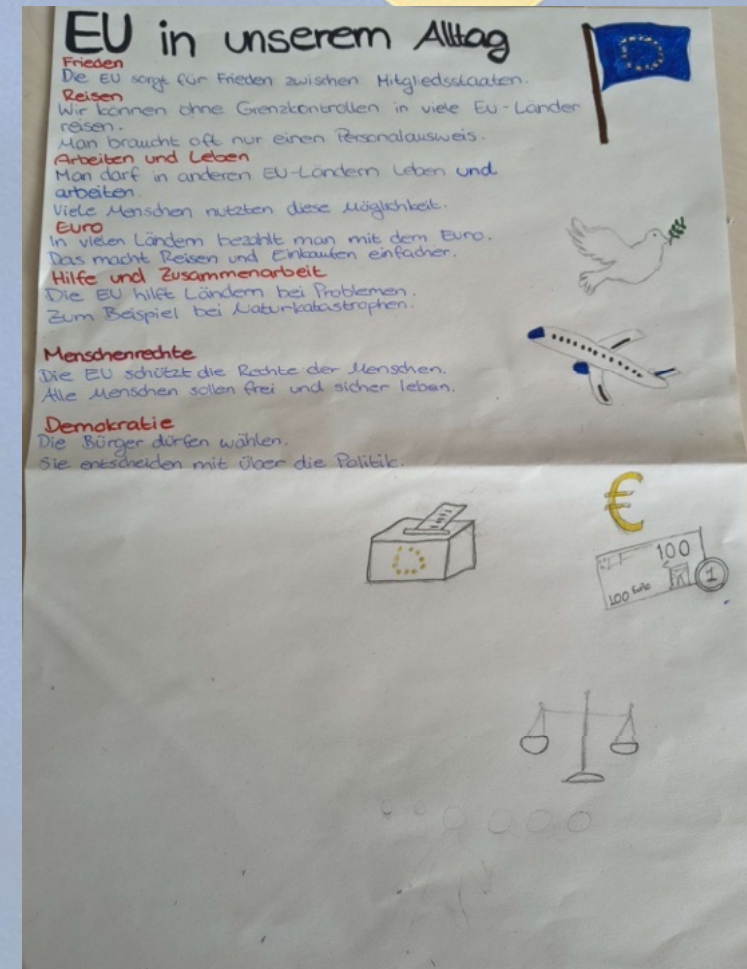 EU in unserem Alltag
Frieden
Die EU sorgt für Frieden zwischen Mitgliedsstaaten.
Reisen
Wir können ohne Grenzkontrollen in viele EU-Länder
reisen.
Man braucht oft nur einen Personalausweis.
Arbeiten und Leben
Man darf in anderen EU-Ländern leben und
arbeiten.
Viele Menschen nutzten diese Möglichkeit.
Euro
In vielen Ländern bezahlt man mit dem Euro.
Das macht Reisen und Einkaufen einfacher.
Hilfe und Zusammenarbeit
Die EU hilft Ländern bei Problemen.
Zum Beispiel bei Naturkatastrophen.
Menschenrechte
Die EU schützt die Rechte der Menschen.
Alle Menschen sollen frei und sicher leben.
Demokratie
Die Bürger dürfen wählen.
Sie entscheiden mit über die Politik.
€
100
100 Euro
1